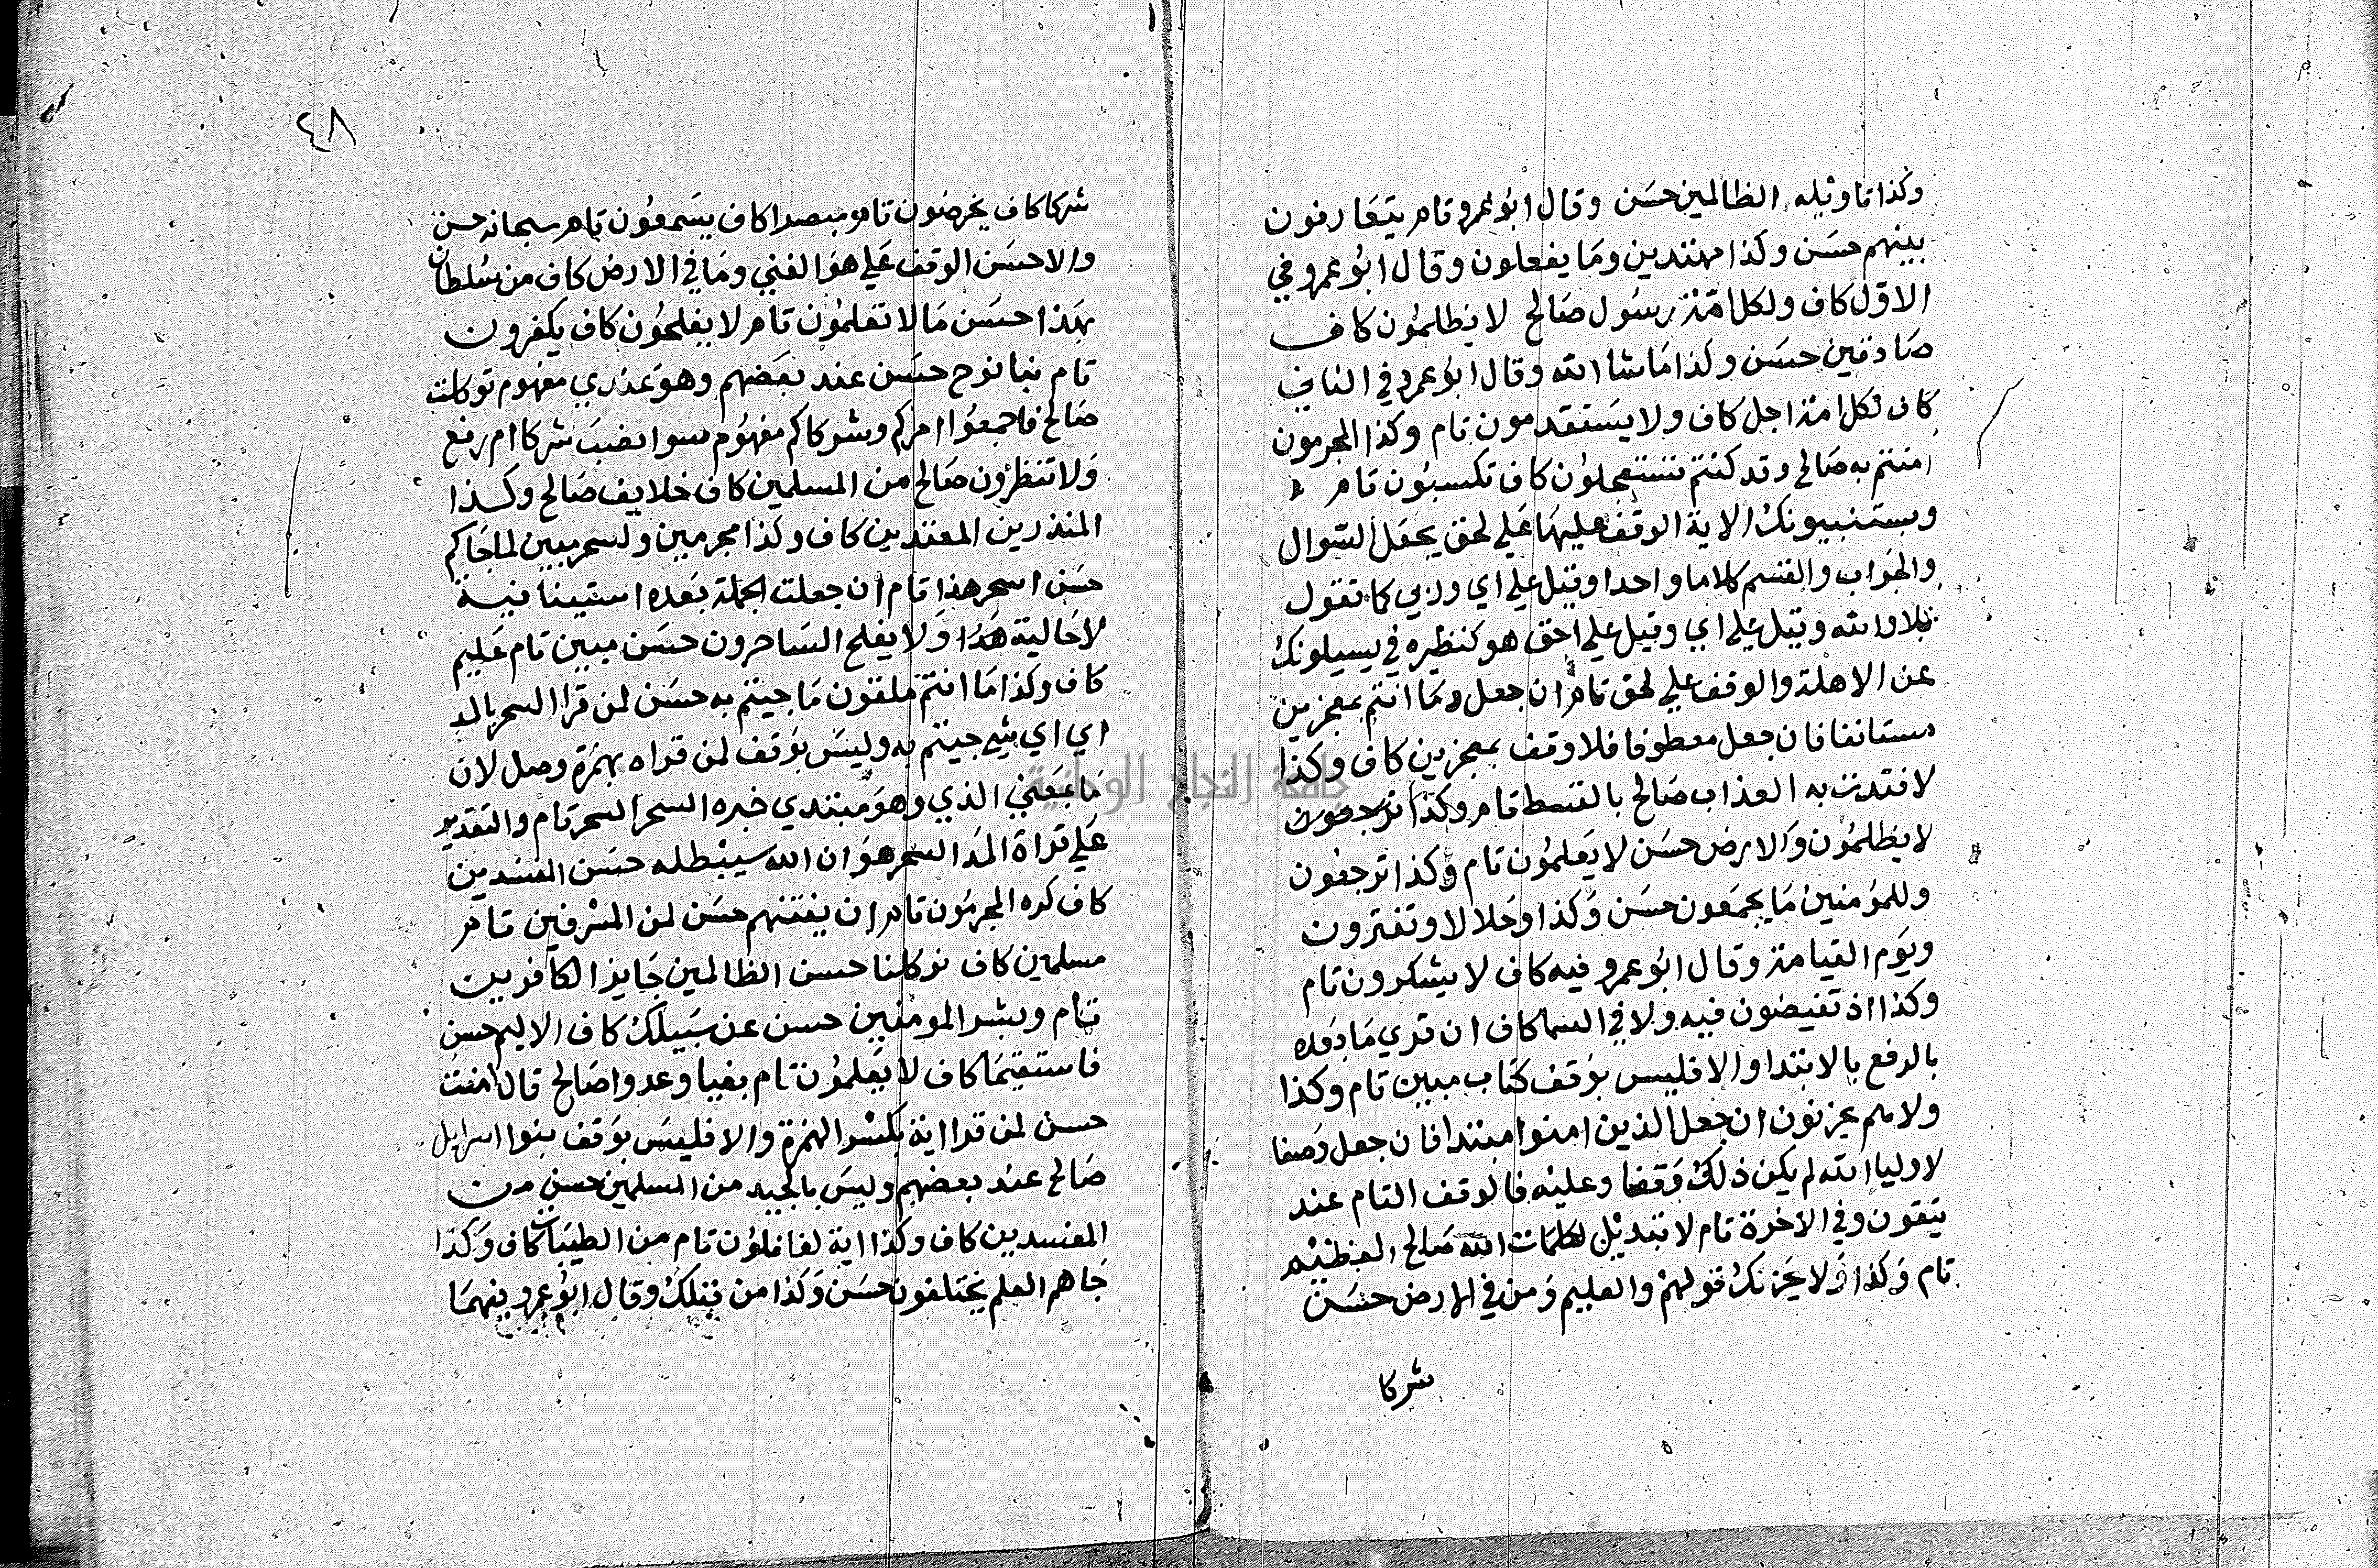 وكذا تاويله الظالمين حسَن وقال ابو عمرو تام يتعَارفون
بينهم حسَن وكذا مهتدين ومَا يفعلون وقال ابو عمرو في
الاول كاف ولكل امّة رسُول صَالح لا يظلمُون كاف
صَادقين حسَن وكذا مَا شا الله وقال ابو عمرو في الثاني
كاف لكل امة اجل كاف ولا يسَتقدمون تام وكذا المجرمون
امنتم به صَالح وقد كنتم تستعجلون كاف تكسبُون تام
ويستنبيونك الاية الوقف عليهَا عَلى لحق بجعَل السّوال
والجوَاب والقسم كلاما واحدا وقيل على اي وربي كما تقول
بلا والله وقيل عَلى اي وقيل على احق هو كنظيره في يسيلونك
عن الاهلة والوقف على لحق تام ان جعل ومَا انتم بمعجزين
مستانفا فان جعل معطوفا فلا وقف بمعجزين كاف وكذا
لافتدت به العذاب صَالح بالقسط تام وكذا ترجعون
لا يظلمُون وَالارض حسَن لا يَعلمُون تام وكذا ترجعُون
وللمؤمنين مَا يجمَعون حسَن وَكذا وحَلالا وتفترون
ويوَم القيامة وقال ابُو عمرو فيه كاف لا يشكرون تام
وكذا اذ تفيضون فيه ولا في السما كاف ان قري مَا بَعده
بالرفع بالابتدا والا فليس بوَقف كتاب مبين تام وكذا
ولا هم يحزنون ان جعل الذين امنوا مبتدا فان جعل وَصفا
لاوليا الله لم يكن ذلك وَقفا وعليْه فالوقف التام عند
يتقون وفي الاخرة تام لا تبديْل لكلمَات الله صَالح العظيْم
تام وَكذا وَلا يحَزنك قولهمْ والعليم وَمن في الارض حسَن
شركا
٤٨
شركا كاف يخرصُون تام مبصرا كاف يسَمعُون تام سبحانه حسن
والاحسَن الوقف عَلى هوَ الغني ومَا في الارض كاف من سُلطان
بهَذا حسَن مَا لا تعَلمُون تام لا يفلحُون كاف يكفرون
تام نبا نوح حسَن عند بعَضهم وهوَ عندي مفهوم توكلت
صَالح فاجمعُوا امركم وشركاكم مفهوُم سوا نصَبَ شركا ام رفع
وَلا تنظرُون صَالح من المسلمين كاف خلايف صَالح وكذا
المنذرين المعتدين كاف وكذا مجرمين ولسحر مبين لما جَاكم
حسَن اسحر هذا تام ان جعلت الجملة بَعده استينافية
لا حَالية هَذا وَلا يفلح السَاحرون حسَن مبين تام عَليم
كاف وكذا مَا انتم ملقون مَا جيتم به حسَن لمن قرا السحر بالمد
اي اي شي جيتم به وليسَ بوَقف لمن قراه بهمَزة وصل لان
مَا بمَعنى الذي وهوَ مبتدي خبره السحر السحر تام والتقدير
عَلى قراة المَد السحر هوَ ان الله سيبْطله حسَن المفسدين
كاف كره المجرمُون تام ان يفتنهم حسَن لمن المسْرفين تام
مسلمين كاف توكلنا حسن الظالمين جَايز الكافرين
تام وبشر المومنين حسن عن سَبيلك كاف الاليم حسن
فاستقيمَا كاف لا يَعلمُون تام بغيا وعدوا صَالح قال امنتُ
حسن لمن قرا انه بكسْر الهمزة والا فليسَ بوَقف بنوا اسرايل
صَالح عند بعضهم وليسَ بالجيد من المسلمين حسن من
المفسدين كاف وكذا اية لغافلون تام من الطيَبات كاف وَكذا
جَاهم العلم يختلفون حسَن وَكذا من قبلك وقال ابُو عمرو فيهمَا
جامعة النجاح الوطنية